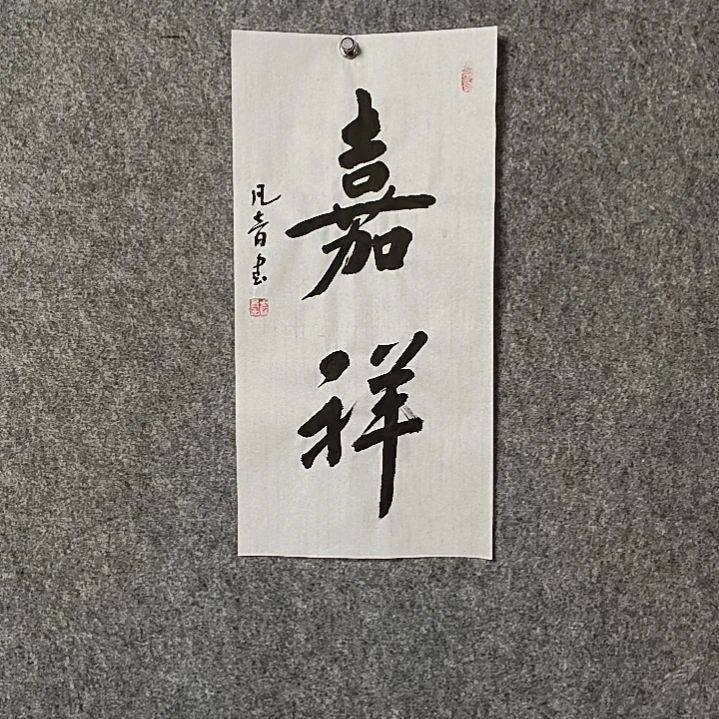 嘉祥
凡音书